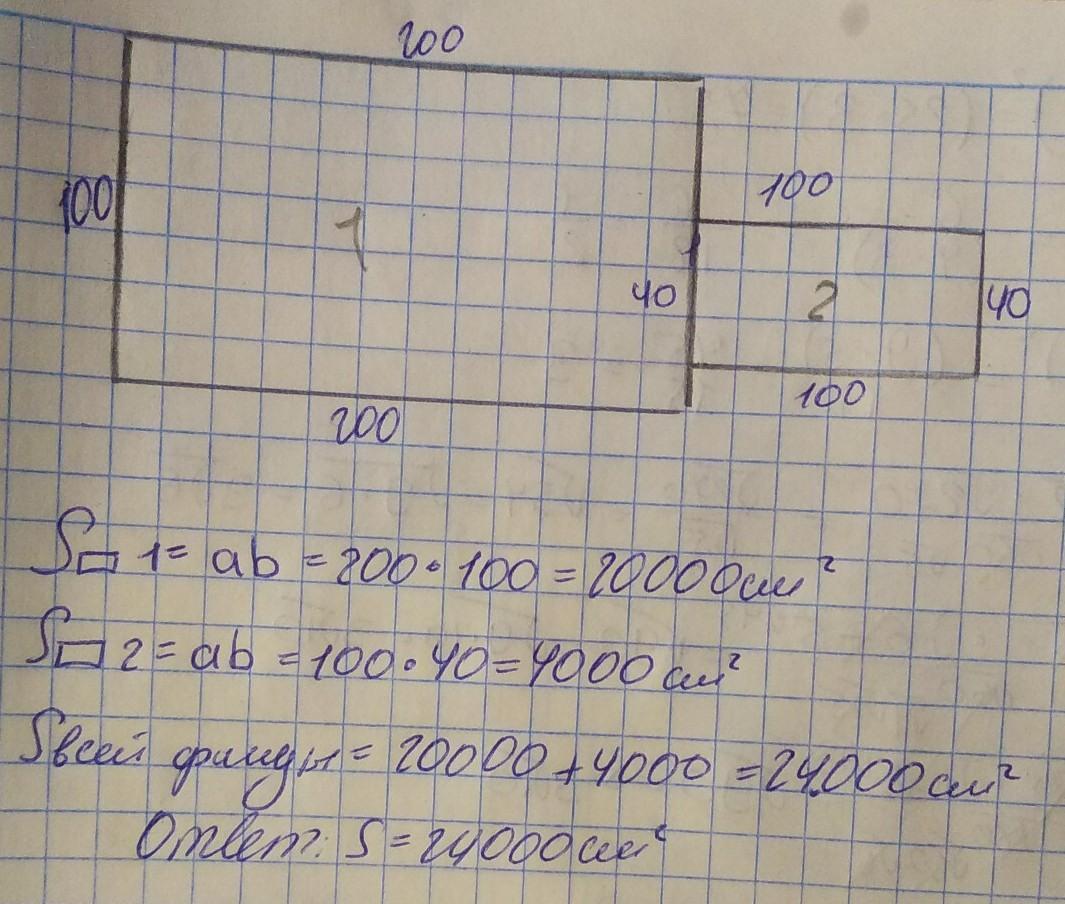 200
100
1
100
40
2
40
200
100
S▭ 1 = ab = 200 · 100 = 20000 см²
S▭ 2 = ab = 100 · 40 = 4000 см²
Sвсей фигуры = 20000 + 4000 = 24000 см²
Ответ: S = 24000 см²